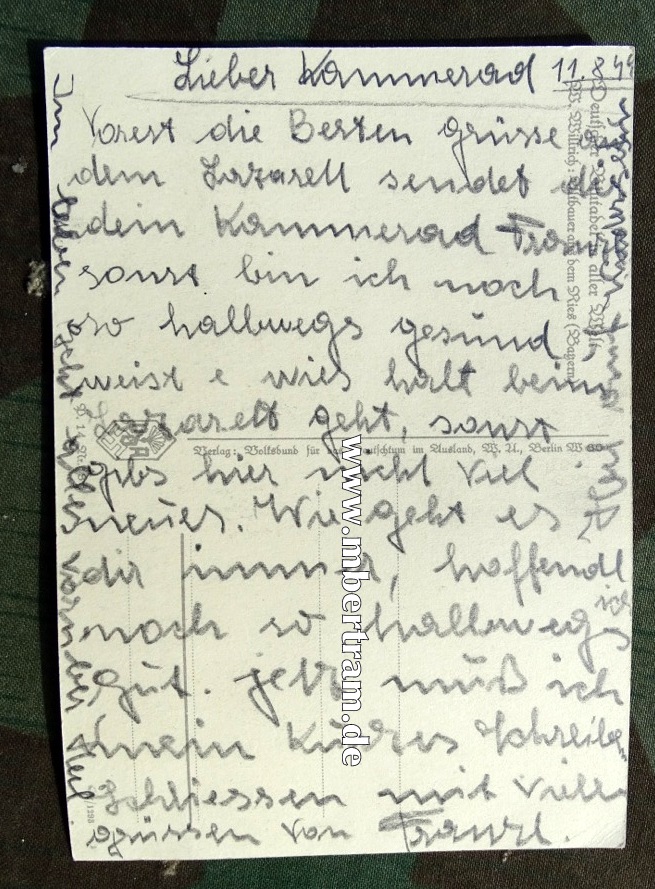 Lieber Kammerad 11.8.44
Vorest die Besten grüsse
dem Lazarell sendet
dein Kammerad Franzl
sonst bin ich noch
so hallwegs gesund,
weist e wies halt beim
Lazarelt geht, sonst
gibs hier nicht viel
neues. Wie geht es
dir immer, hoffendl
ich
noch so hallwegs
Gut. jetz muß ich
mein kurzes schreiben
Schliessen mit viele
grüssen von Franzl.
Im Leben geht alles vorüber
Deutscher Volksadel in aller Welt
W. Willrich: Altbauer aus dem Ries (Bayern)
Verlag: Volksbund für das Deutschtum im Ausland, W. 30
www.mbertram.de